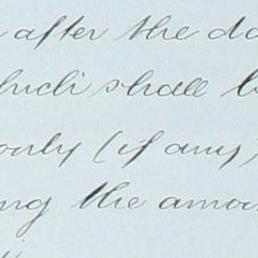 after the da
hich shall b
only (if any)
ng the amou